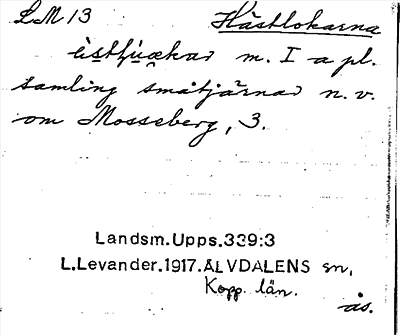 LM 13 Hästlokarna
èstl̥ùokar m. I a pl.
samling småtjärnar n.v.
om Mosseberg, 3.
Landsm.Upps.339:3
L.Levander.1917.ÄLVDALENS sn,
Kopp. län.
ås.